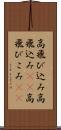 高飛び込み高
飛込み高
飛びこみ